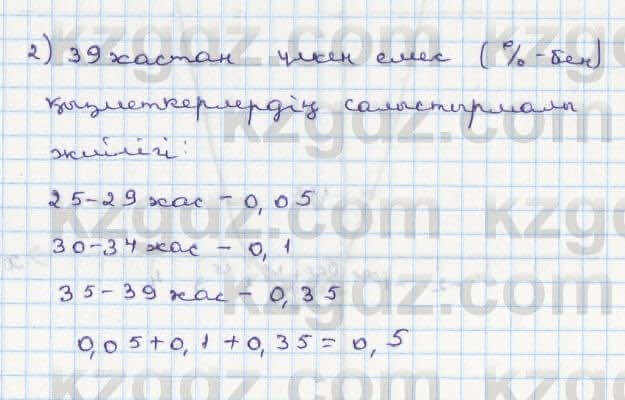 2) 39 жастан үлкен емес (%-бен)
қызметкерлердің салыстырмалы
жиілігі:
25-29 жас - 0,05
30-34 жас - 0,1
35-39 жас - 0,35
0,05+0,1+0,35=0,5
kzgdz.com